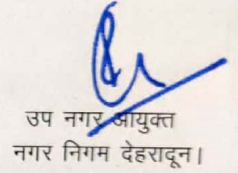 उप नगर आयुक्त
नगर निगम देहरादून।